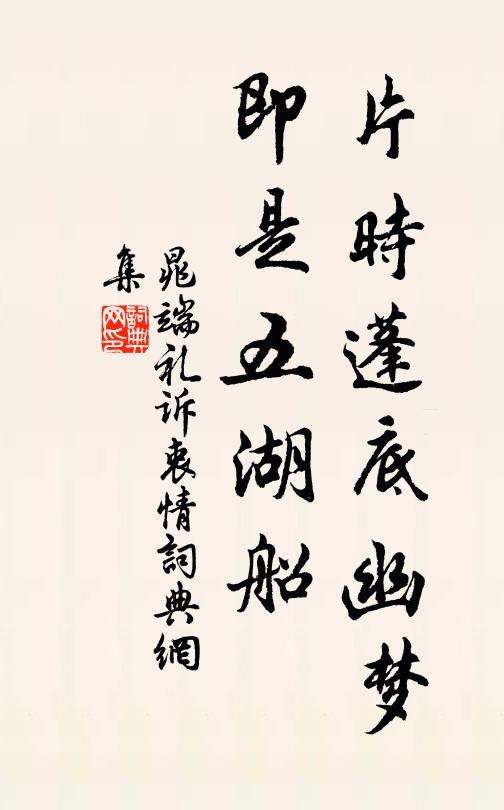 片時蓬底幽梦
即是五湖船
晁端礼诉衷情詞典網
集
詞典
网印